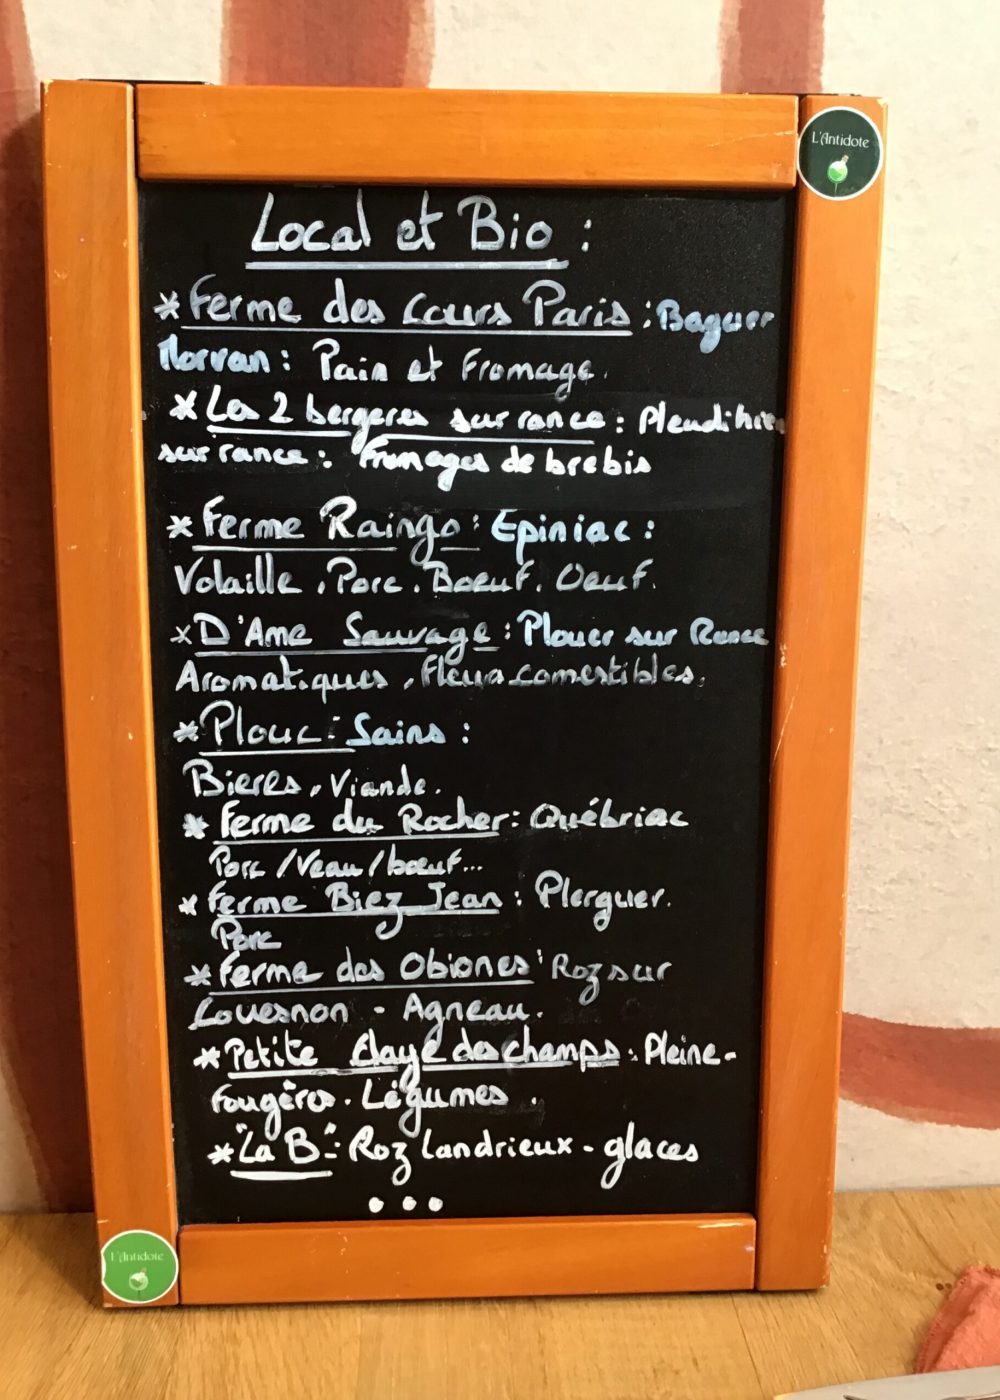 L'Antidote
Local et Bio :
* Ferme des Cours Paris : Baguer
Morvan : Pain et Fromage.
* Les 2 bergeres sur rance : Pleudihen
sur rance : Fromages de brebis
* Ferme Raingo : Epiniac :
Volaille, Porc. Boeuf. Oeuf.
* D'Ame Sauvage : Plouer sur Rance
Aromatiques, Fleurs comestibles.
* Plouc : Sains :
Bieres, Viande.
* Ferme du Rocher : Québriac
Porc / Veau / boeuf...
* Ferme Biez Jean : Plerguer.
Porc
* Ferme des Obiones : Roz sur
Couesnon - Agneau.
* Petite Claye des champs. Pleine-
Fougères. Légumes.
* "La B" - Roz Landrieux - glaces
...
L'Antidote